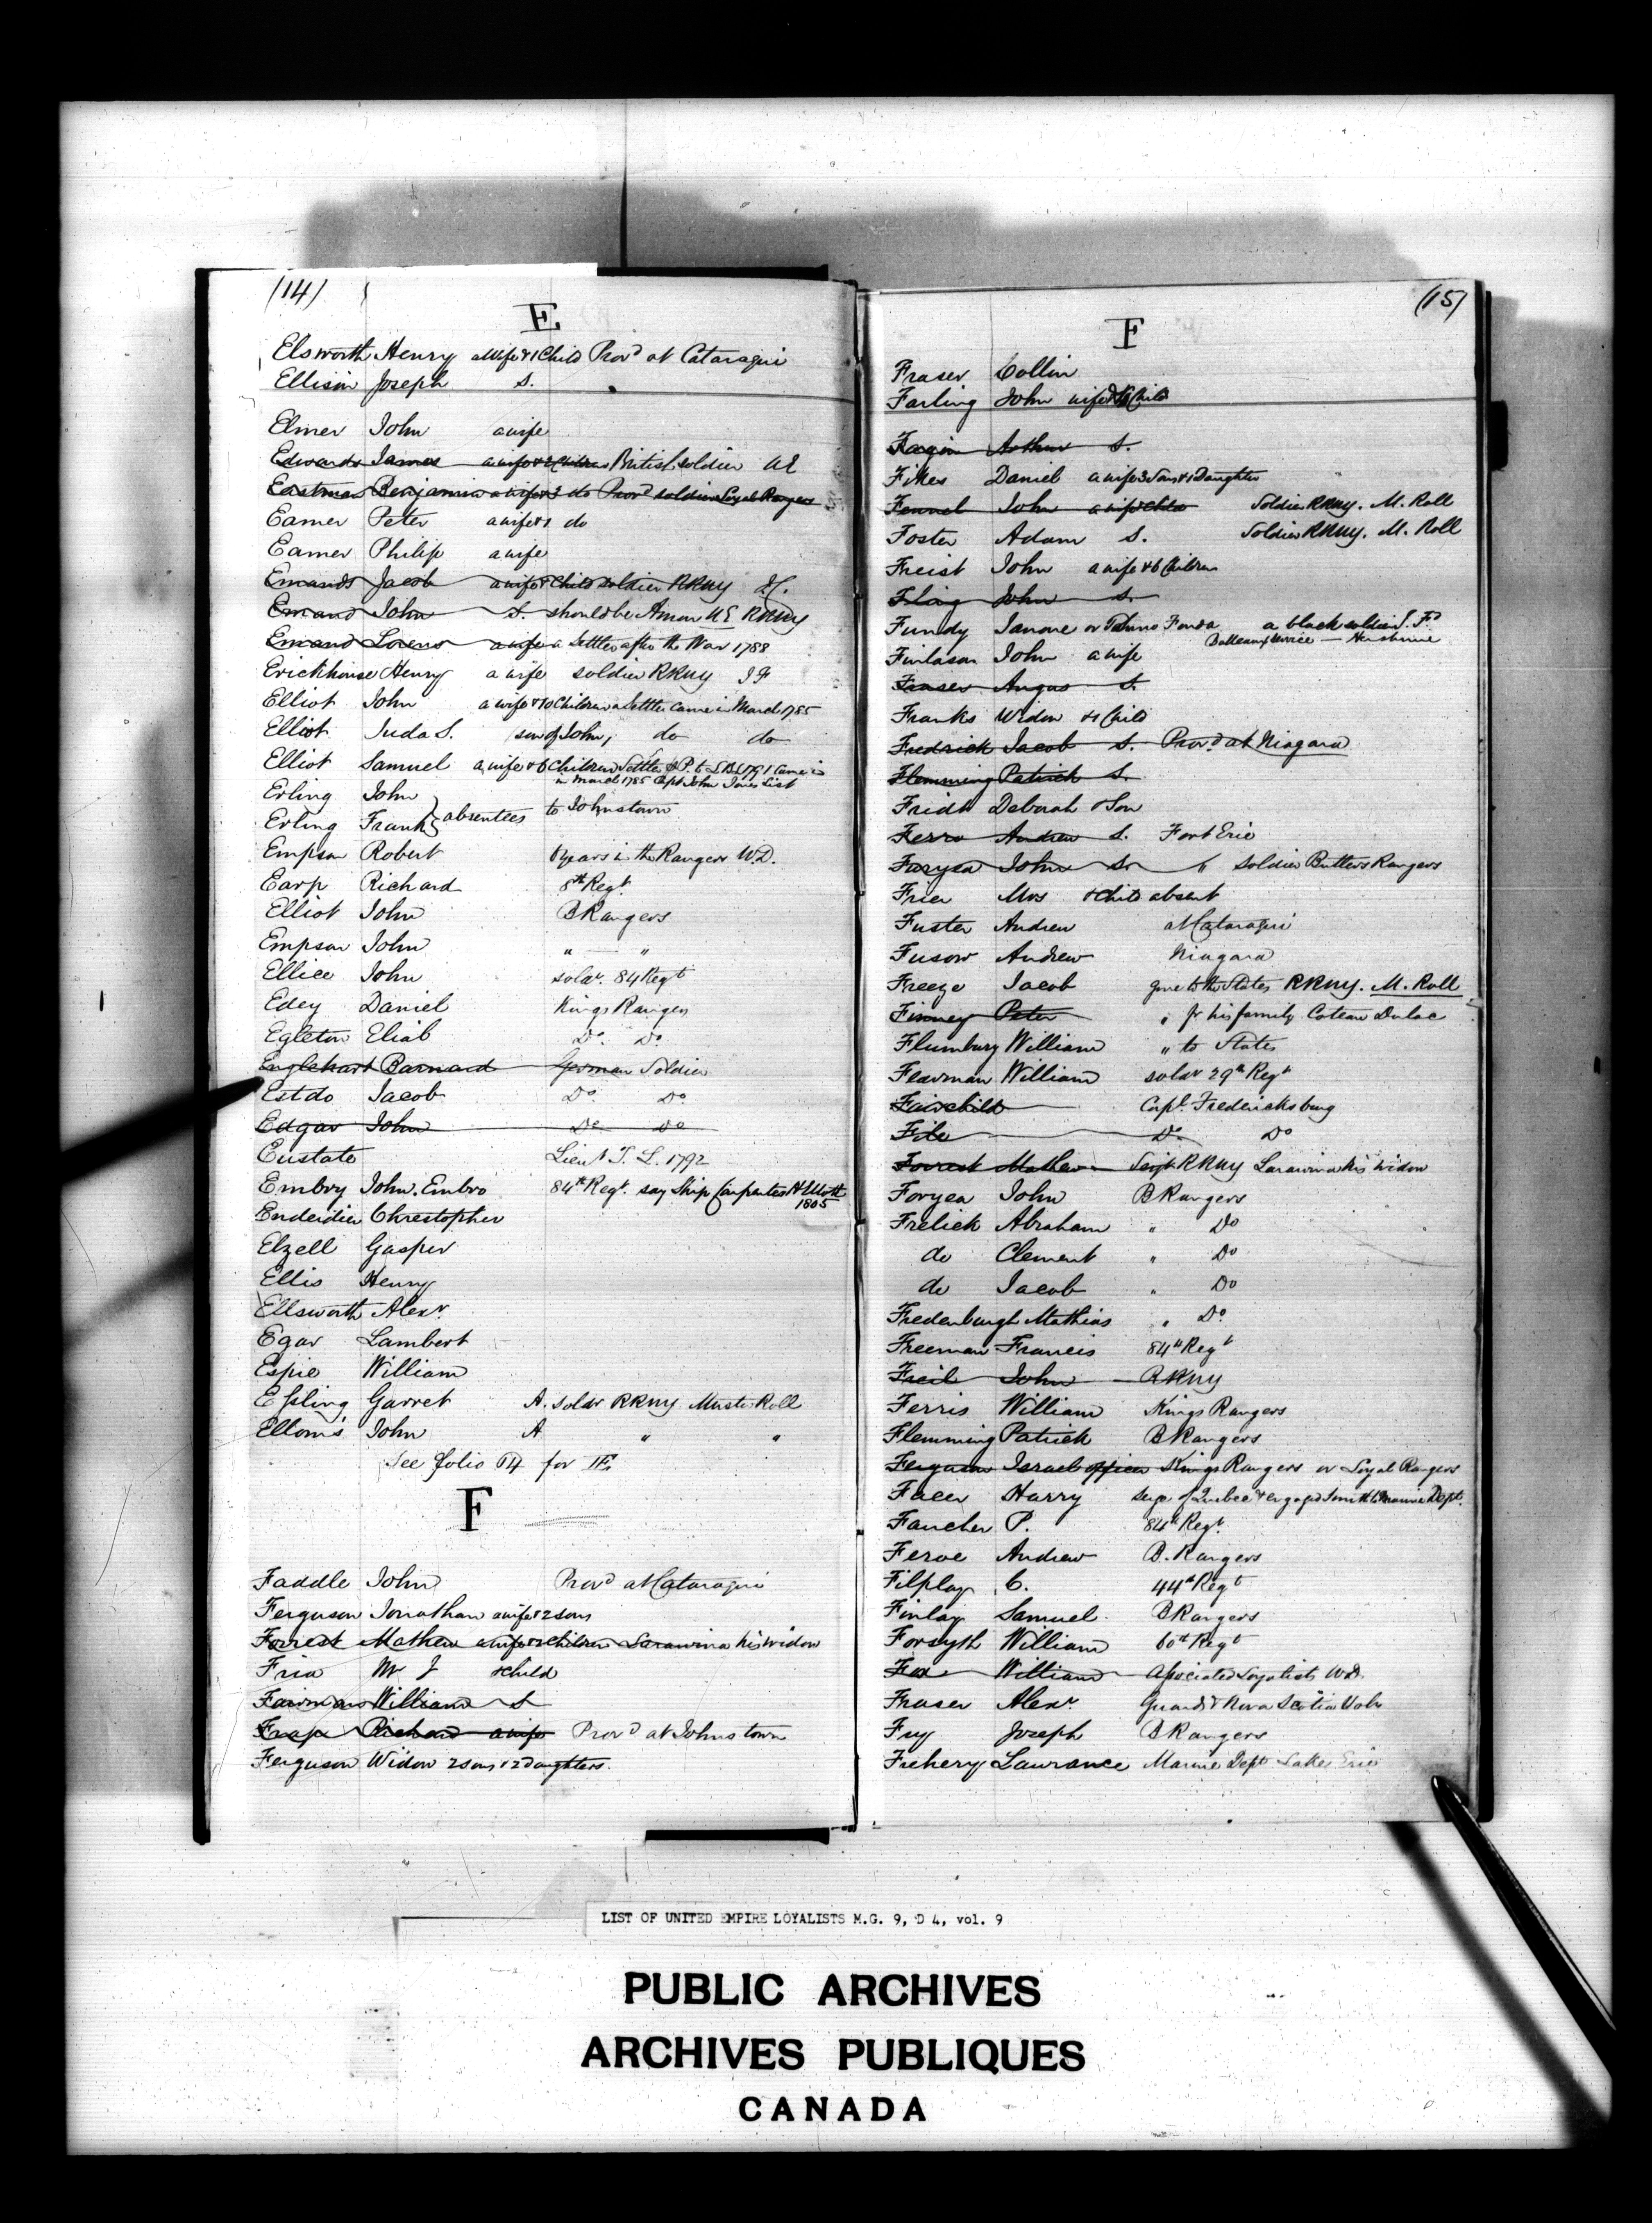 (14)
E
Elsworth Henry a wife & 1 Child Prov'd at Cataraqui
Ellison Joseph S.
Elmer John a wife
Edwards James a wife & 2 Children British soldier
Eastman Benjamin a wife & 3 do Prov'd soldier Loyal Rangers
Eamer Peter a wife & 1 do
Eamer Philip a wife
Emands Jacob a wife & Child soldier RRNY
Emand John S. should be Aman UE RRNY
Emand Lorens a wife a Settler after the War 1788
Erickhouse Henry a wife soldier RRNY
Elliot John a wife & 10 Children a Settler came in March 1785
Elliot Juda S. son of John, do do
Elliot Samuel a wife & 6 Children Settler came in
in March 1785 Capt John Jones List
Erling John
Erling Frank } absentees to Johnstown
Empson Robert 6 years in the Rangers W.D.
Earp Richard 8th Regt.
Elliot John B Rangers
Empson John " "
Ellice John soldr. 84 Regt
Edey Daniel Kings Rangers
Egleton Eliab Do. Do
Englehart Barnard German Soldier
Estdo Jacob Do Do.
Edgar John Do Do
Eustate Lieut I. L. 1792
Embry John. Embro 84th Regt. say Ship Carpenter
1805
Enderdier Chrestopher
Elzell Gasper
Ellis Henry
Ellsworth Alexr.
Egar Lambert
Espie William
Essling Garret A. soldr RRNY Muster Roll
Elloms John A " "
See folio 74 for E
F
Faddle John Prov'd at Cataraqui
Ferguson Jonathan a wife & 2 sons
Forrest Mathew a wife & 2 Children Larawina his widow
Fria Mr J & Child
Fairman William S
Frap Richard a wife Prov'd at Johnstown
Ferguson Widow 2 sons & 2 Daughters.
(15)
F
Fraser Collin
Farling John wife & 4 Child
Fagin Arthur S.
Fikes Daniel a wife 3 Sons & 1 Daughter
Fennel John a wife Soldier RRNY. M. Roll
Foster Adam S. Soldier RRNY. M. Roll
Freist John a wife & 6 Children
Fling John S.
Fundy Janore or Fonda a black soldier
Finlason John a wife
Fraser Angus S.
Franks Widow & 1 Child
Fredrick Jacob S. Prov'd at Niagara
Flemming Patrick S.
Fridt Deborah & Son
Ferro Andrew S. Fort Erie
Furyea John S. " Soldier Butlers Rangers
Frier Mrs & Child absent
Fuster Andrew at Cataraqui
Fusow Andrew Niagara
Freeze Jacob gone to the States RRNY. M. Roll
Finney Peter " fr his family Coteau Dulac
Flumbury William " to States
Flearman William soldr 29th Regt
Fairchild Capt. Fredericksburg
File Do. Do
Forrest Mathew Serjt RRNY Larawina his widow
Foryea John B Rangers
Frelick Abraham " Do
do Clement " Do
do Jacob " Do
Fredenburgh Mathias " Do.
Freeman Francis 84th Regt
Freil John RRNY
Ferris William Kings Rangers
Flemming Patrick B Rangers
Ferguson Israel officer Kings Rangers or Loyal Rangers
Facer Harry Siege of Quebec & engaged Smith to Marine Dept.
Faucher P. 84th Regt.
Feroe Andrew B. Rangers
Filplay C. 44th Regt
Finlay Samuel B Rangers
Forsyth William 60th Regt
Fox William Associated Loyalists W.D.
Fraser Alexr Guards & Nova Scotia Volr
Fry Joseph B Rangers
Frehery Laurance Marine Dept Lake Erie
LIST OF UNITED EMPIRE LOYALISTS M.G. 9, D 4, vol. 9
PUBLIC ARCHIVES
ARCHIVES PUBLIQUES
CANADA